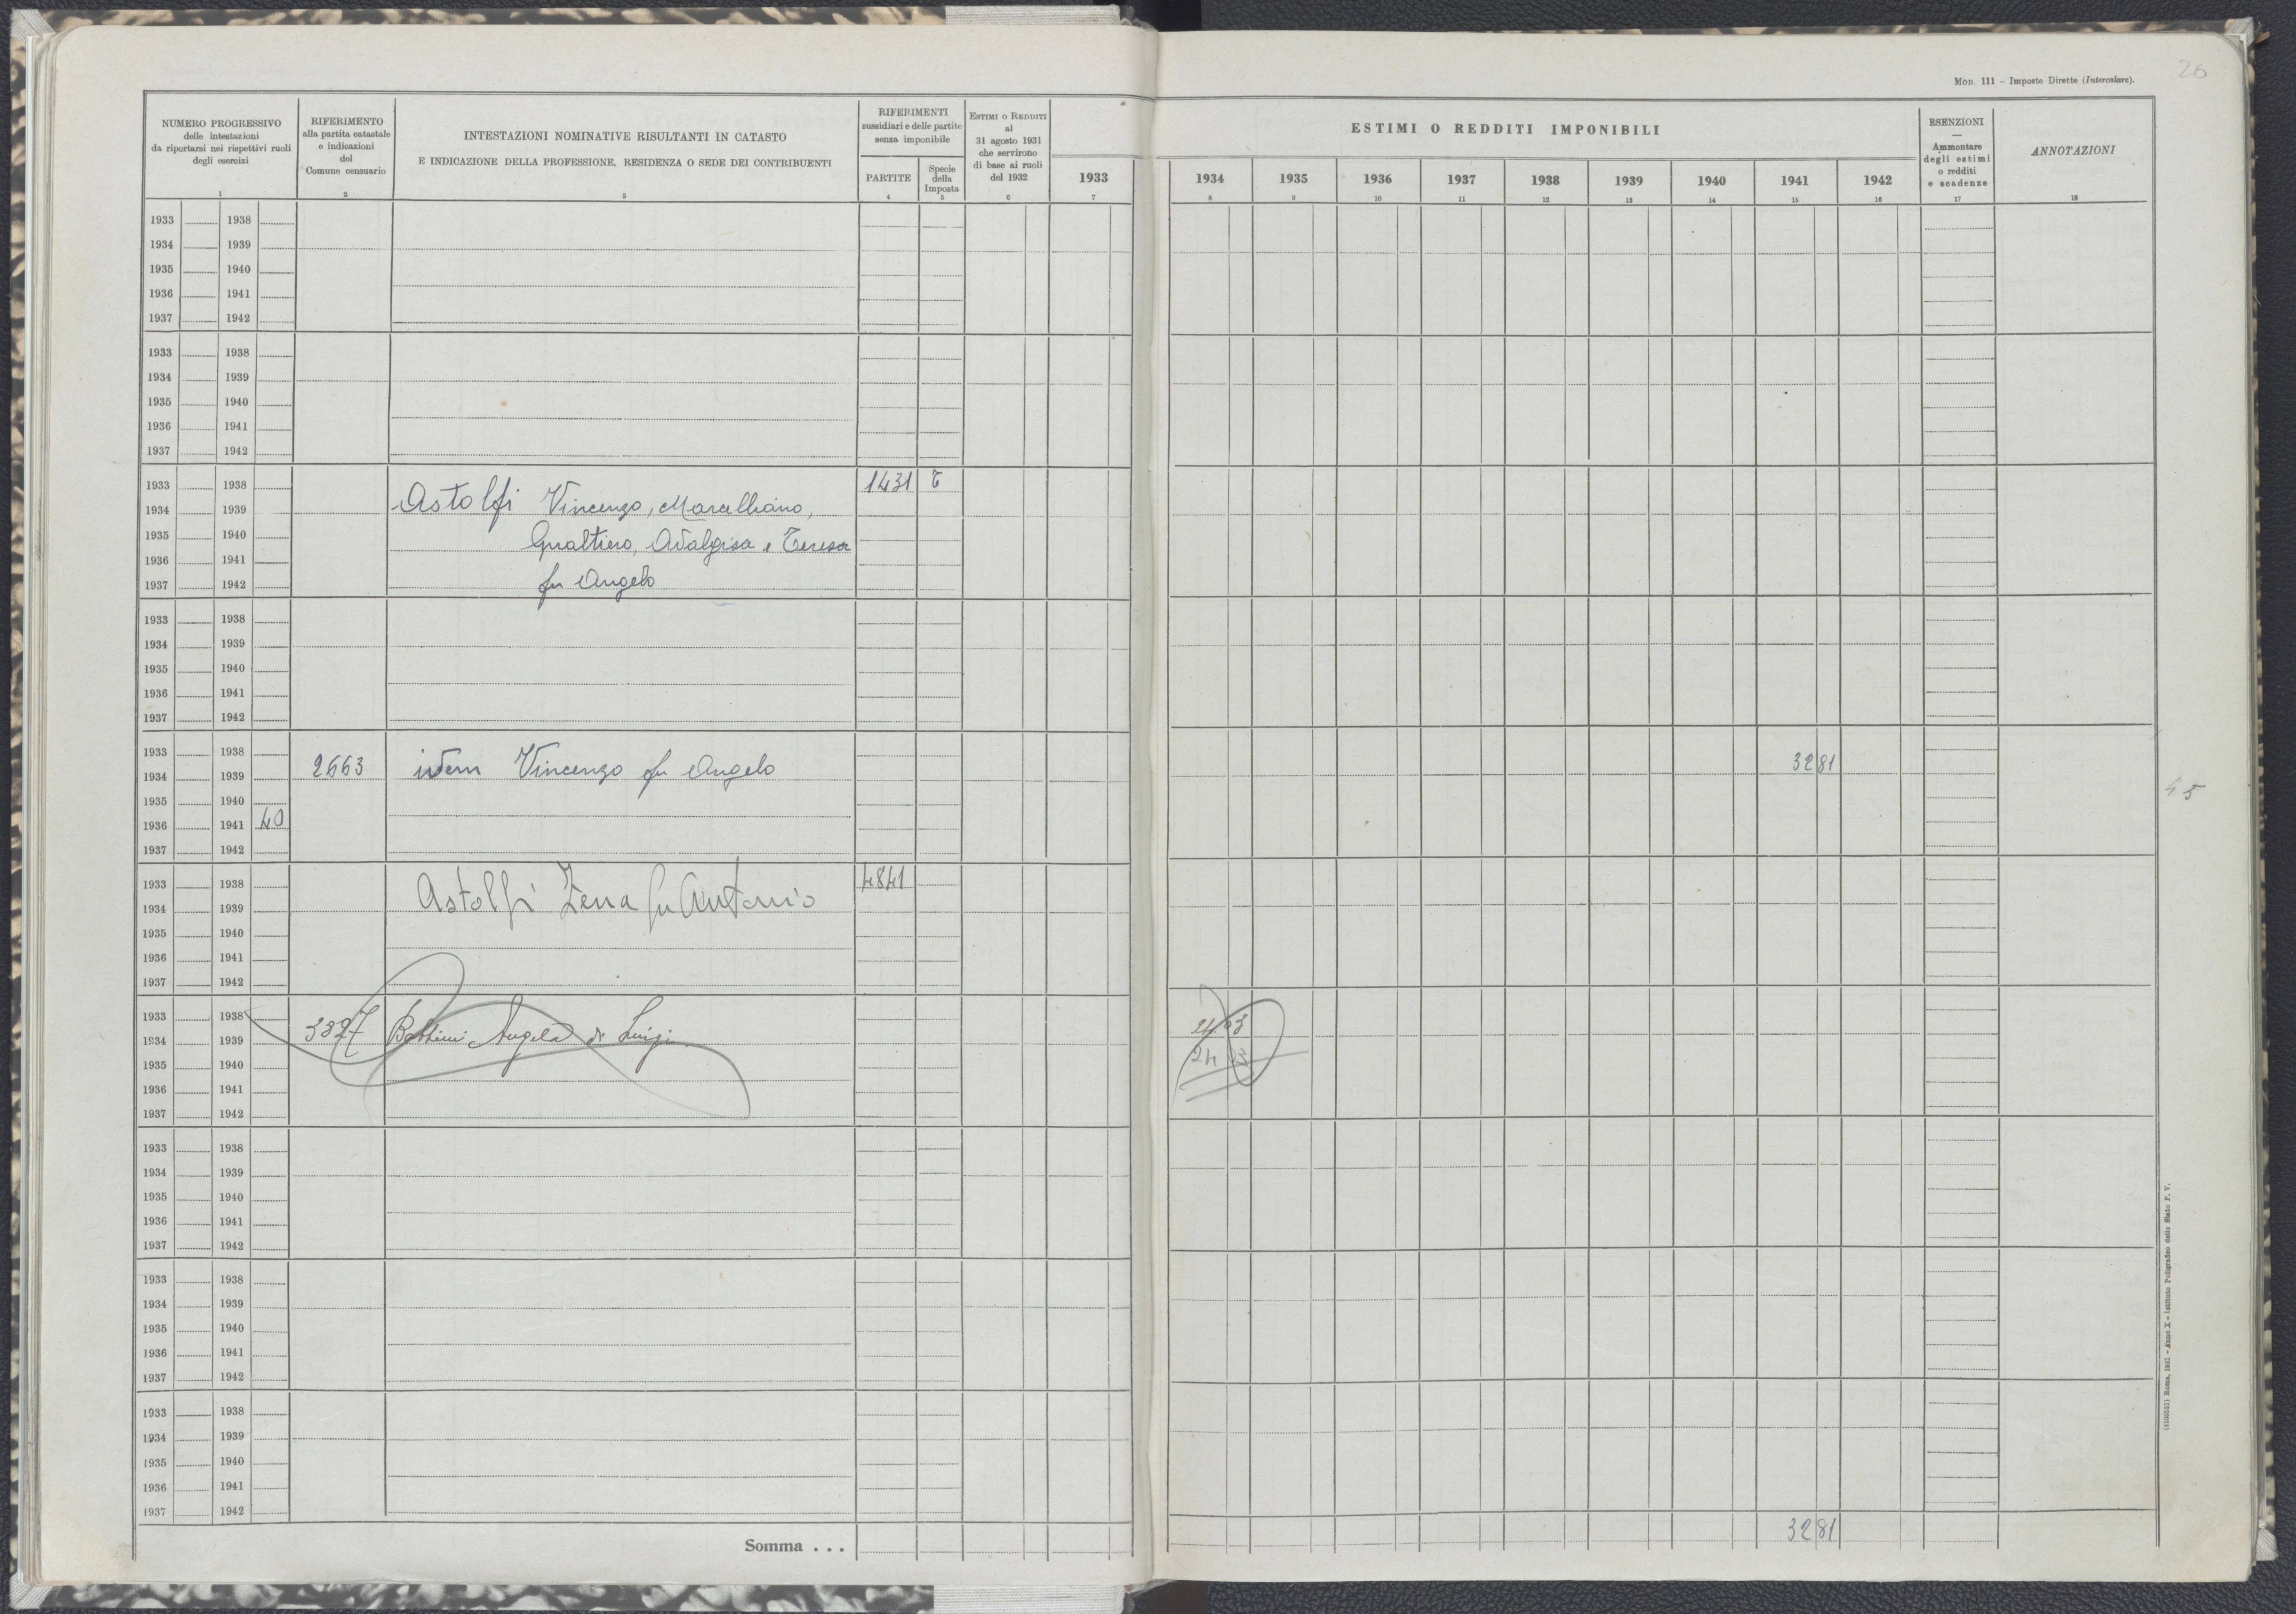 20
MOD. 111 – Imposte Dirette (Intercalare).
NUMERO PROGRESSIVO
delle intestazioni
da riportarsi nei rispettivi ruoli
degli esercizi
1
RIFERIMENTO
alla partita catastale
e indicazioni
del
Comune censuario
2
INTESTAZIONI NOMINATIVE RISULTANTI IN CATASTO
E INDICAZIONE DELLA PROFESSIONE, RESIDENZA O SEDE DEI CONTRIBUENTI
3
RIFERIMENTI
sussidiari e delle partite
senza imponibile
PARTITE
4
Specie
della
Imposta
5
ESTIMI O REDDITI
al
31 agosto 1931
che servirono
di base ai ruoli
del 1932
6
ESTIMI O REDDITI IMPONIBILI
1933
7
1934
8
1935
9
1936
10
1937
11
1938
12
1939
13
1940
14
1941
15
1942
16
ESENZIONI
—
Ammontare
degli estimi
o redditi
e scadenze
17
ANNOTAZIONI
18
1933 1938
1934 1939
1935 1940
1936 1941
1937 1942
1933 1938
1934 1939
1935 1940
1936 1941
1937 1942
1933 1938 1431 T
1934 1939 Astolfi Vincenzo, Marcelliano,
1935 1940 Gualtiero, Adalgisa e Teresa
1936 1941
1937 1942 fu Angelo
1933 1938
1934 1939
1935 1940
1936 1941
1937 1942
1933 1938
1934 1939 2663 idem Vincenzo fu Angelo 3281
1935 1940
1936 1941 40
1937 1942
45
1933 1938 4841
1934 1939 Astolfi Zena fu Antonio
1935 1940
1936 1941
1937 1942
1933 1938
1934 1939 3827 Angela di Luigi
1935 1940
1936 1941
1937 1942
1933 1938
1934 1939
1935 1940
1936 1941
1937 1942
1933 1938
1934 1939
1935 1940
1936 1941
1937 1942
1933 1938
1934 1939
1935 1940
1936 1941
1937 1942
Somma . . . 3281
(4100531) Roma, 1931 – Anno X – Istituto Poligrafico dello Stato P. V.